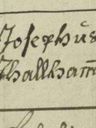 Josephus
Thallham̅